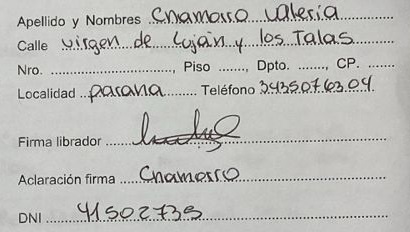 Apellido y Nombres Chamorro Valeria
Calle virgen de Lujan y los Talas
Nro. ............................, Piso ......., Dpto. ......., CP. .......
Localidad parana Teléfono 3435076304
Firma librador
Aclaración firma Chamorro
DNI 41502735